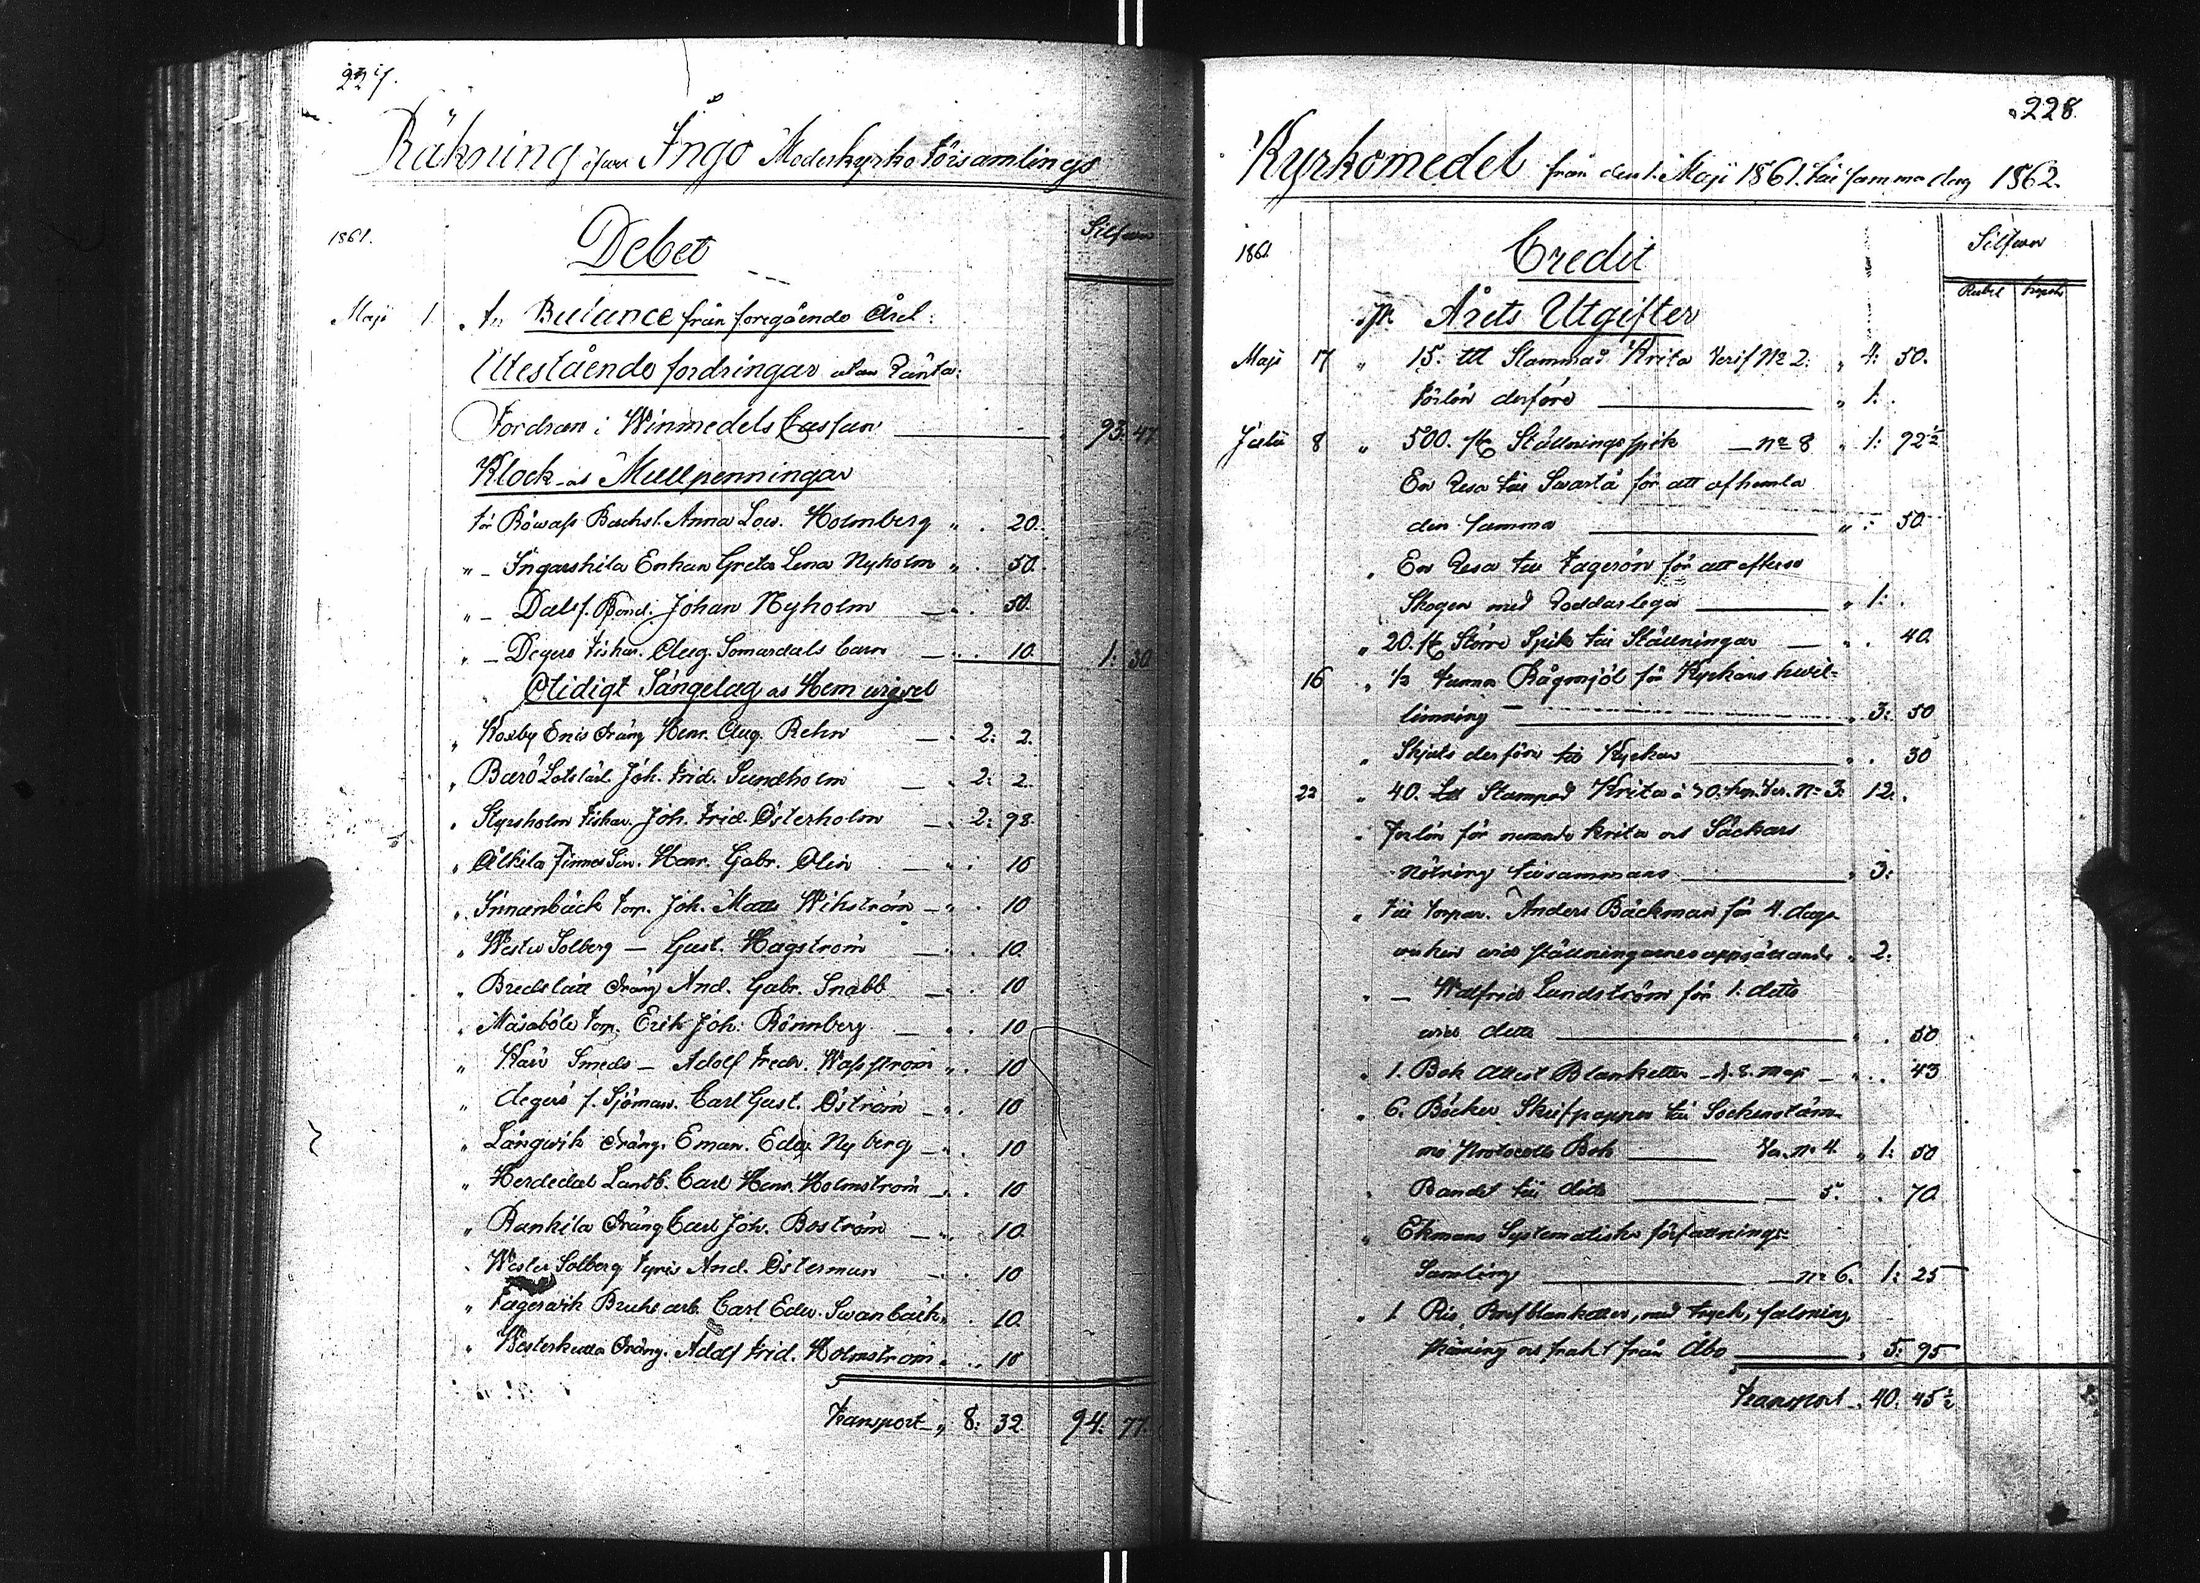 227.
Räkning öfver Ingo Moderkyrko Församlings
1861.
Debet
Silfver
Maji 1. An Balance från föregående Året.
Utestående fordringar utan Ränta:
Fordran i Winmedels Cassan 93. 47
Klock- och Mullpenningar
för Båwass Bachst. Anna Lov. Holmberg " . 20.
" - Ingarskila Enkan Greta Lena Nyholm " . 50.
" - Dals f. Bond. Johan Nyholm - " . 50.
" - Degerö Fiskar. Aug. Somardals barn - " . 10. 1: 30
Otidigt Sängelag och Hem wigsel
" Woxby Enis Dräng Henr. Aug. Rehn - " 2: 2.
" Barö Lotslärl. Joh. Frid. Sundholm - " 2: 2.
" Styrsholm Fiskar. Joh. Frid. Österholm - " 2: 98.
" Ålkila Henr. Gabr. Olin - " . 10
" Innanbäck Torp. Joh. Matts Wikström - " . 10
" Wester Solberg - Gust. Hagström - " . 10.
" Bredslätt Dräng And. Gabr. Snabb - " . 10
" Måsaböle Torp. Erik Joh. Rönnberg - " . 10
" Smeds - Adolf Fredr. Wassström " . 10
" Degerö f. Sjöman. Carl Gust. Öström - " . 10
" Långwik Dräng. Eman. Edv. Nyberg - " . 10
" Herdedal Lantb. Carl Henr. Holmström - " . 10
" Rankila Dräng Carl Joh. Boström - " . 10
" Wester Solberg And. Österman - " . 10
" Fagervik Bruksarb. Carl Edv. Swanbäck " . 10.
" Westerkulla Dräng. Adolf Frid. Holmström " . 10
Transport " 8: 32. 94: 77.
228.
Kyrkomedel från den 1. Maji 1861. till samma dag 1862.
1861
Credit
Silfver
Rubel Kopek
Pr Årets Utgifter
Maji 17 " 15. Slammad Krita Verif No 2: " 4: 50.
Förlön derföre " 1: .
8 " 500. st. Ställningsspik - No 8 " 1: 92½
En Resa till Swartå för att afhemta
den samma " : 50
" En Resa till Fagerön för att efterse
Skogen med Roddarlega " 1: .
" 20. st. Större Spik till Ställningar - " . 40.
16 " ½ Tunna Rågmjöl för Kyrkans hvit-
limning " 3: 50
" Skjuts derföre till Kyrkan " . 30
22 " 40. Stampad Krita à 30. kop. Ver. No 3: 12: .
" Forlön för nemnde krita och Säckars
Nötning tillsammans " 3:
" till Torpar. Anders Bäckman för 4. dags-
wid ställningarnes uppsättande " 2:
" - Walfrid Lundström för 1. ditto
wid ditto " . 50
" 1. Bok Attest Blanketter - " . 43
" 6. Böcker Skrifpapper till Sockenstäm-
mo Protocolls Bok Ver. No 4. " 1: 50
" Bandet till dito - 5. " . 70
" Ekmans Systematiska författnings-
Samling - No 6. 1: 25
" 1 Ris blanketter, med tryck, falsning
och frakt från Åbo " 5: 95
Transport " 40. 45½